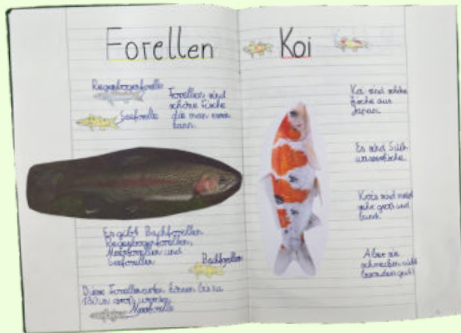 Forellen
Regenbogenforelle
Seeforelle
Forellen sind
schöne Fische
die man essen
kann.
Es gibt Bachforellen
Regenbogenforellen,
Meerforellen und
Seeforellen
Bachforellen
Diese Forellenarten können bis zu
130cm groß werden.
Meerforelle
Koi
Koi sind schöne
Fische aus
Japan.
Es sind Süß
wasserfische.
Kois sind meist
sehr groß und
bunt.
Aber sie
schmecken nicht
besonders gut!